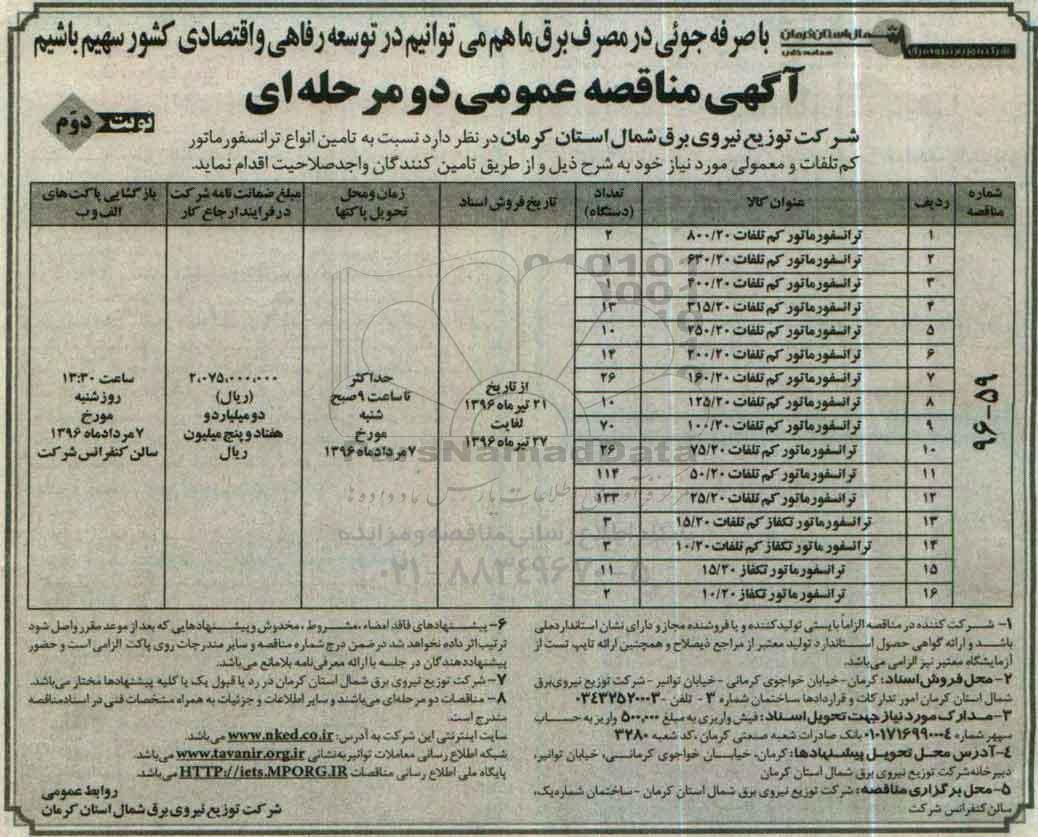 با صرفه جوئی در مصرف برق ما هم می توانیم در توسعه رفاهی و اقتصادی کشور سهیم باشیم
آگهی مناقصه عمومی دو مرحله ای
نوبت دوّم
شرکت توزیع نیروی برق شمال استان کرمان در نظر دارد نسبت به تامین انواع ترانسفورماتور
کم تلفات و معمولی مورد نیاز خود به شرح ذیل و از طریق تامین کنندگان واجدصلاحیت اقدام نماید.
شماره مناقصه | ردیف | عنوان کالا | تعداد (دستگاه) | تاریخ فروش اسناد | زمان و محل تحویل پاکتها | مبلغ ضمانت نامه شرکت در فرایند ارجاع کار | بازگشایی پاکت های الف و ب
۹۶-۵۹
۱ ترانسفورماتور کم تلفات ۸۰۰/۲۰ ۲
۲ ترانسفورماتور کم تلفات ۶۳۰/۲۰ ۱
۳ ترانسفورماتور کم تلفات ۴۰۰/۲۰ ۱
۴ ترانسفورماتور کم تلفات ۳۱۵/۲۰ ۱۳
۵ ترانسفورماتور کم تلفات ۲۵۰/۲۰ ۱۰
۶ ترانسفورماتور کم تلفات ۲۰۰/۲۰ ۱۴
۷ ترانسفورماتور کم تلفات ۱۶۰/۲۰ ۲۶
۸ ترانسفورماتور کم تلفات ۱۲۵/۲۰ ۱۰
۹ ترانسفورماتور کم تلفات ۱۰۰/۲۰ ۷۰
۱۰ ترانسفورماتور کم تلفات ۷۵/۲۰ ۲۶
۱۱ ترانسفورماتور کم تلفات ۵۰/۲۰ ۱۱۴
۱۲ ترانسفورماتور کم تلفات ۲۵/۲۰ ۱۳۳
۱۳ ترانسفورماتور تکفاز کم تلفات ۱۵/۲۰ ۳
۱۴ ترانسفورماتور تکفاز کم تلفات ۱۰/۲۰ ۳
۱۵ ترانسفورماتور تکفاز ۱۵/۲۰ ۱۱
۱۶ ترانسفورماتور تکفاز ۱۰/۲۰ ۲
از تاریخ
۲۱ تیرماه ۱۳۹۶
لغایت
۲۷ تیرماه ۱۳۹۶
حداکثر
تا ساعت ۹ صبح
شنبه
مورخ
۷ مردادماه ۱۳۹۶
۲،۰۷۵،۰۰۰،۰۰۰
(ریال)
دو میلیارد و
هفتاد و پنج میلیون
ریال
ساعت ۱۳:۳۰
روز شنبه
مورخ
۷ مردادماه ۱۳۹۶
سالن کنفرانس شرکت
ParsNamadData
پایگاه اطلاع رسانی مناقصه و مزایده
۰۲۱-۸۸۳۴۹۶۷۰-۵
۱- شرکت کننده در مناقصه الزاماً بایستی تولید کننده و یا فروشنده مجاز و دارای نشان استاندارد ملی
باشد و ارائه گواهی حصول استاندارد تولید معتبر از مراجع ذیصلاح و همچنین ارائه تایپ تست از
آزمایشگاه معتبر نیز الزامی می‌باشد.
۲- محل فروش اسناد: کرمان - خیابان خواجوی کرمانی - خیابان توانیر - شرکت توزیع نیروی برق
شمال استان کرمان امور تدارکات و قراردادها ساختمان شماره ۳ - تلفن ۰۳۴۳۲۵۷۰۰۰۳
۳- مدارک مورد نیاز جهت تحویل اسناد: فیش واریزی به مبلغ ۵۰۰,۰۰۰ واریز به حساب
سپهر شماره ۰۱۰۱۷۱۶۹۹۰۰۰۴ بانک صادرات شعبه صنعتی کرمان ، کد شعبه ۳۲۸۰
۴- آدرس محل تحویل پیشنهادها: کرمان، خیابان خواجوی کرمانی، خیابان توانیر،
دبیرخانه شرکت توزیع نیروی برق شمال استان کرمان
۵- محل برگزاری مناقصه: شرکت توزیع نیروی برق شمال استان کرمان - ساختمان شماره یک،
سالن کنفرانس شرکت
۶- پیشنهادهای فاقد امضاء ، مشروط ، مخدوش و پیشنهادهایی که بعد از موعد مقرر واصل شود
ترتیب اثر داده نخواهد شد در ضمن درج شماره مناقصه و سایر مندرجات روی پاکت الزامی است و حضور
پیشنهاد دهندگان در جلسه با ارائه معرفی نامه بلامانع می‌باشد.
۷- شرکت توزیع نیروی برق شمال استان کرمان در رد یا قبول یک یا کلیه پیشنهادها مختار می‌باشد.
۸- مناقصات دو مرحله‌ای می‌باشند و سایر اطلاعات و جزئیات به همراه مشخصات فنی در اسناد مناقصه
مندرج است.
سایت اینترنتی این شرکت به آدرس: www.nked.co.ir می‌باشد.
شبکه اطلاع رسانی معاملات توانیر به نشانی www.tavanir.org.ir می‌باشد.
پایگاه ملی اطلاع رسانی مناقصات HTTP://iets.MPORG.IR می‌باشد.
روابط عمومی
شرکت توزیع نیروی برق شمال استان کرمان